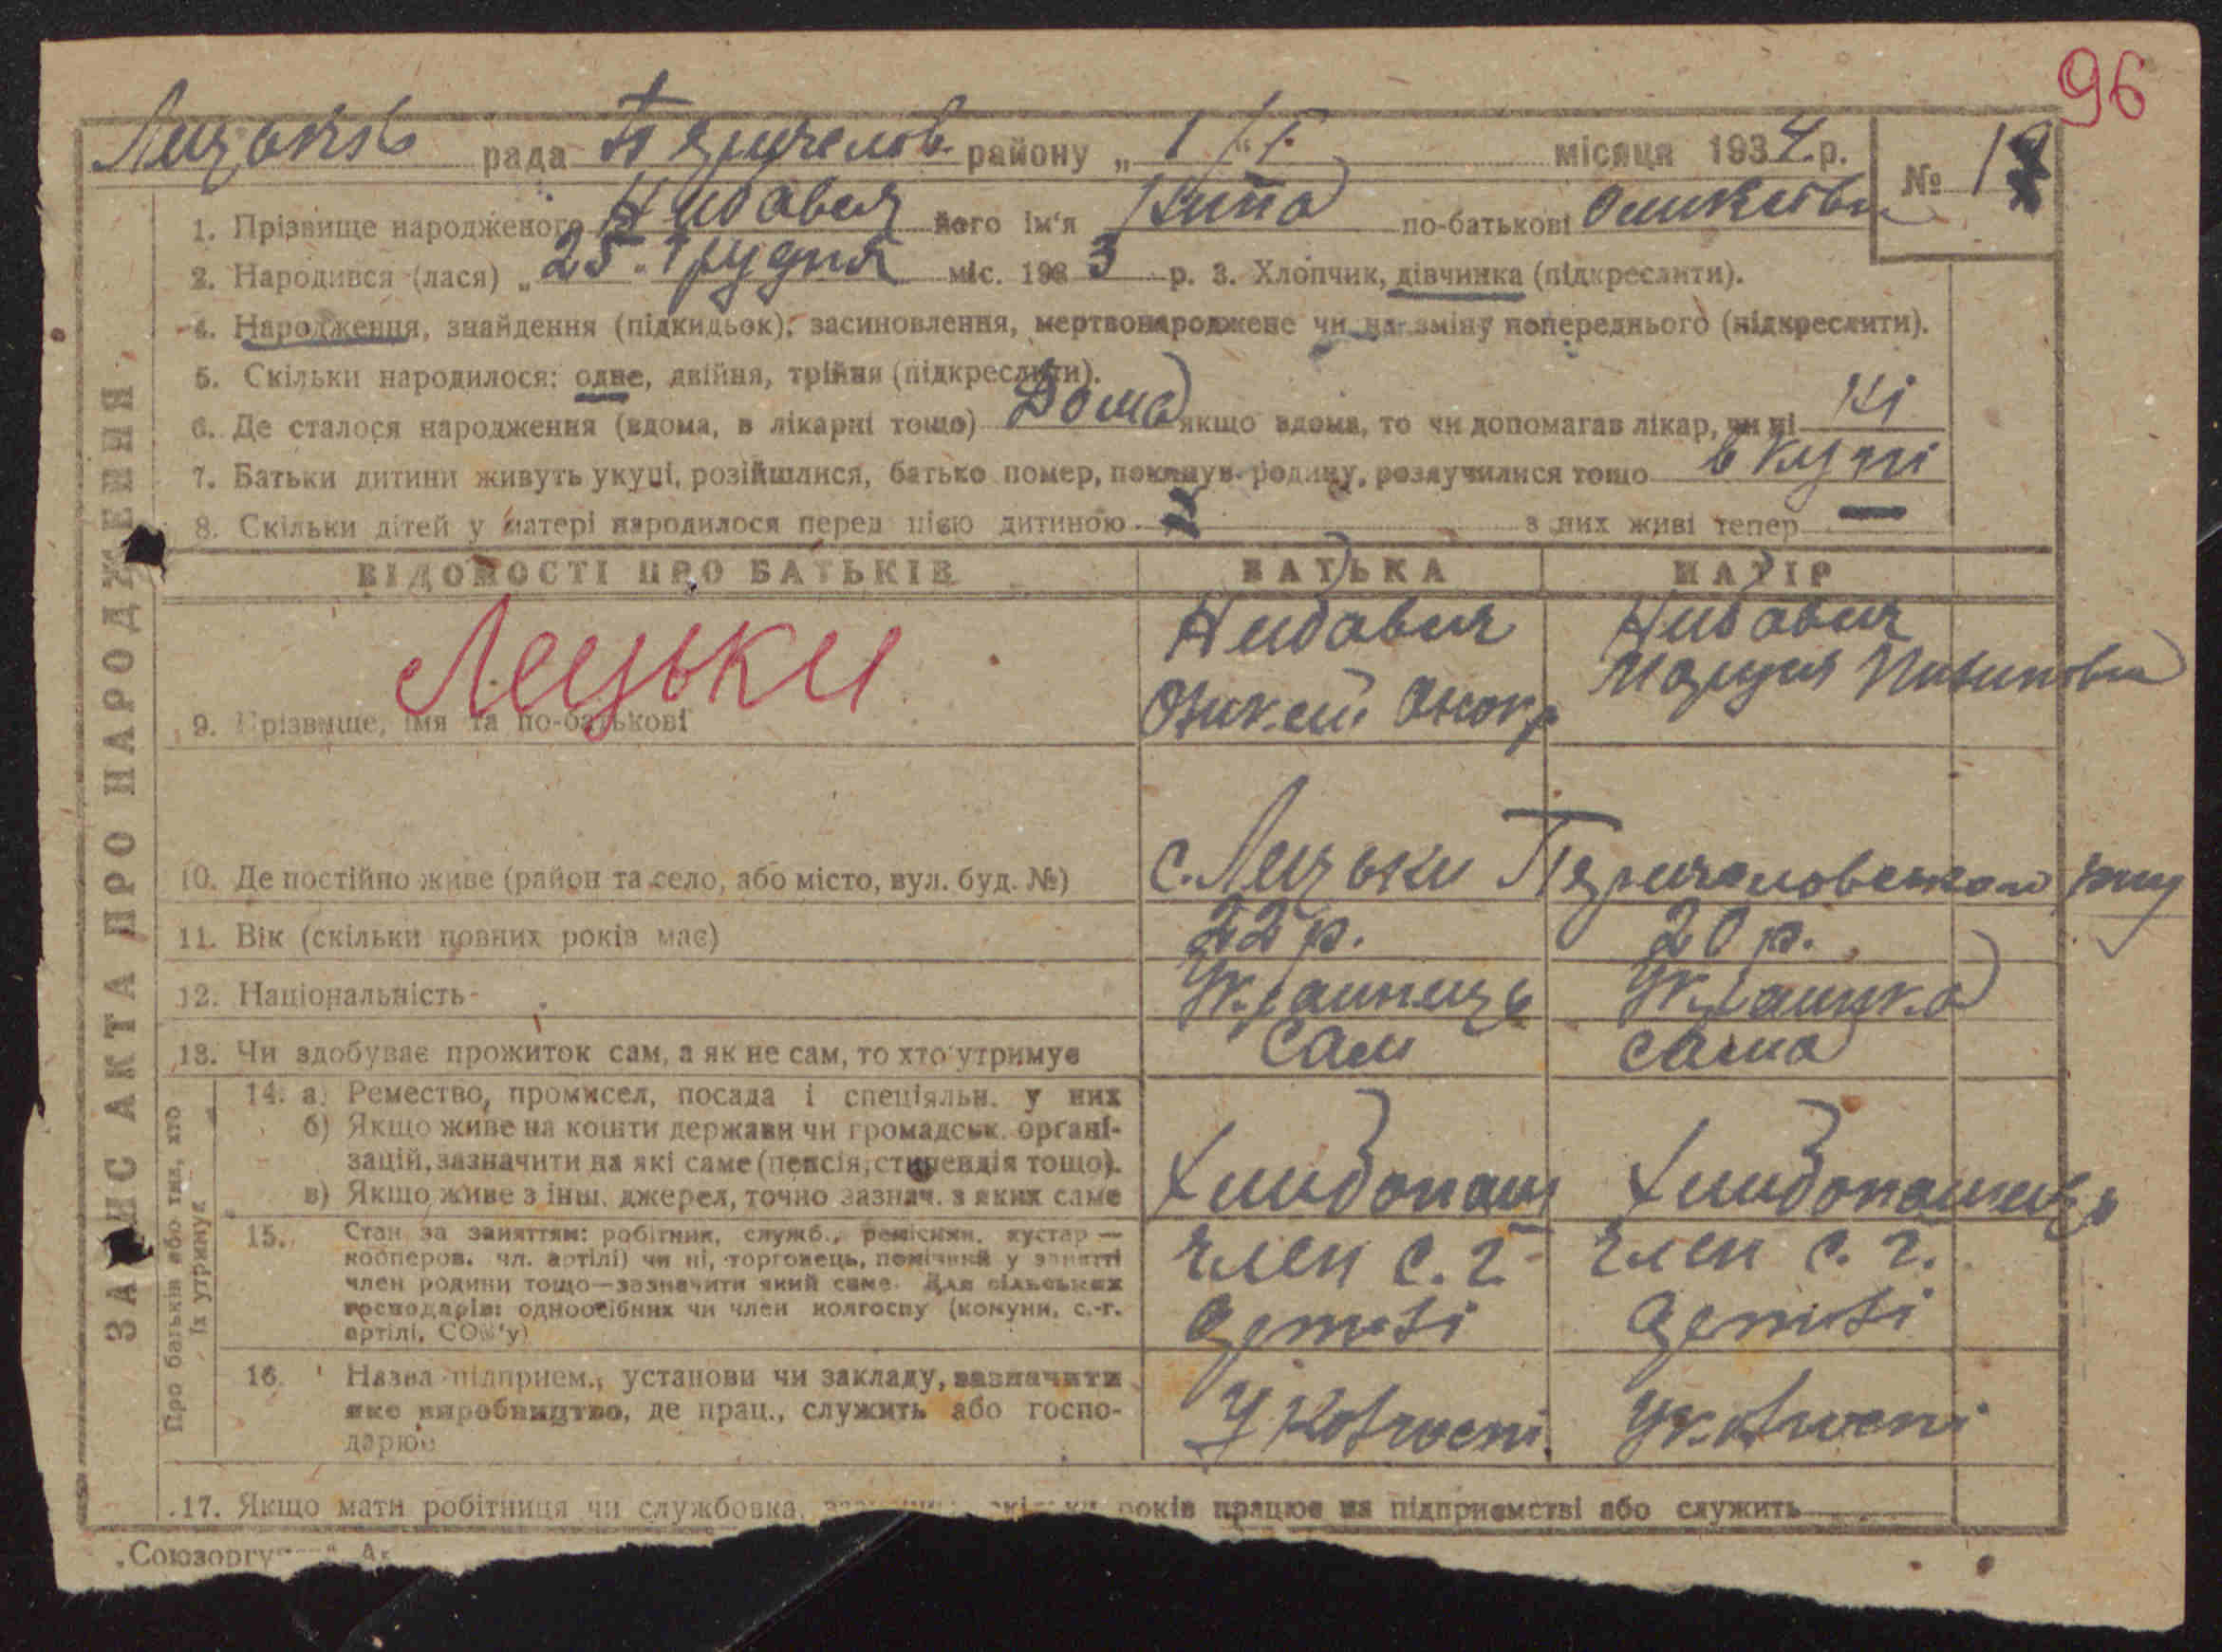 96
рада району „ 1 / 1 місяця 1934 р. № 1
1. Прізвище народженого його ім'я по-батькові
2. Народився (лася) „ 25 " грудня міс. 1933 р. 3. Хлопчик, дівчинка (підкреслити).
4. Народження, знайдення (підкидьок), засиновлення, мертвонароджене чи на зміну попереднього (підкреслити).
5. Скільки народилося: одне, двійня, трійня (підкреслити).
6. Де сталося народження (вдома, в лікарні тощо) Дома якщо вдома, то чи допомагав лікар, чи ні Ні
7. Батьки дитини живуть укупі, розійшлися, батько помер, покинув родину, розлучилися тощо в купі
8. Скільки дітей у матері народилося перед цією дитиною з них живі тепер —
ЗАПИС АКТА ПРО НАРОДЖЕННЯ
ВІДОМОСТІ ПРО БАТЬКІВ БАТЬКА МАТІР
Лецьки
9. Прізвище, імя та по-батькові
10. Де постійно живе (район та село, або місто, вул. буд. №) с. Лецьки
11. Вік (скільки повних років має) 22 р. 20 р.
12. Національність Українець Українка
13. Чи здобуває прожиток сам, а як не сам, то хто утримує Сам сама
Про батьків або тих, хто їх утримує
14. а) Ремество, промисел, посада і спеціяльн. у них
б) Якщо живе на кошти держави чи громадськ. органі-
зацій, зазначити на які саме (пенсія, стипендія тощо).
в) Якщо живе з інш. джерел, точно зазнач. з яких саме
15. Стан за заняттям: робітник, служб., ремісник, кустар —
кооперов. чл. артілі) чи ні, торговець, помічний у занятті
член родини тощо—зазначити який саме. Для сільських
господарів: одноосібник чи член колгоспу (комуни, с.-г.
артілі, СОЗ'у)
член с. г. член с. г.
артілі артілі
16. Назва підприєм., установи чи закладу, зазначити
яке виробництво, де прац., служить або госпо-
дарює
У колгоспі У колгоспі
17. Якщо мати робітниця чи службовка, років працює на підприємстві або служить